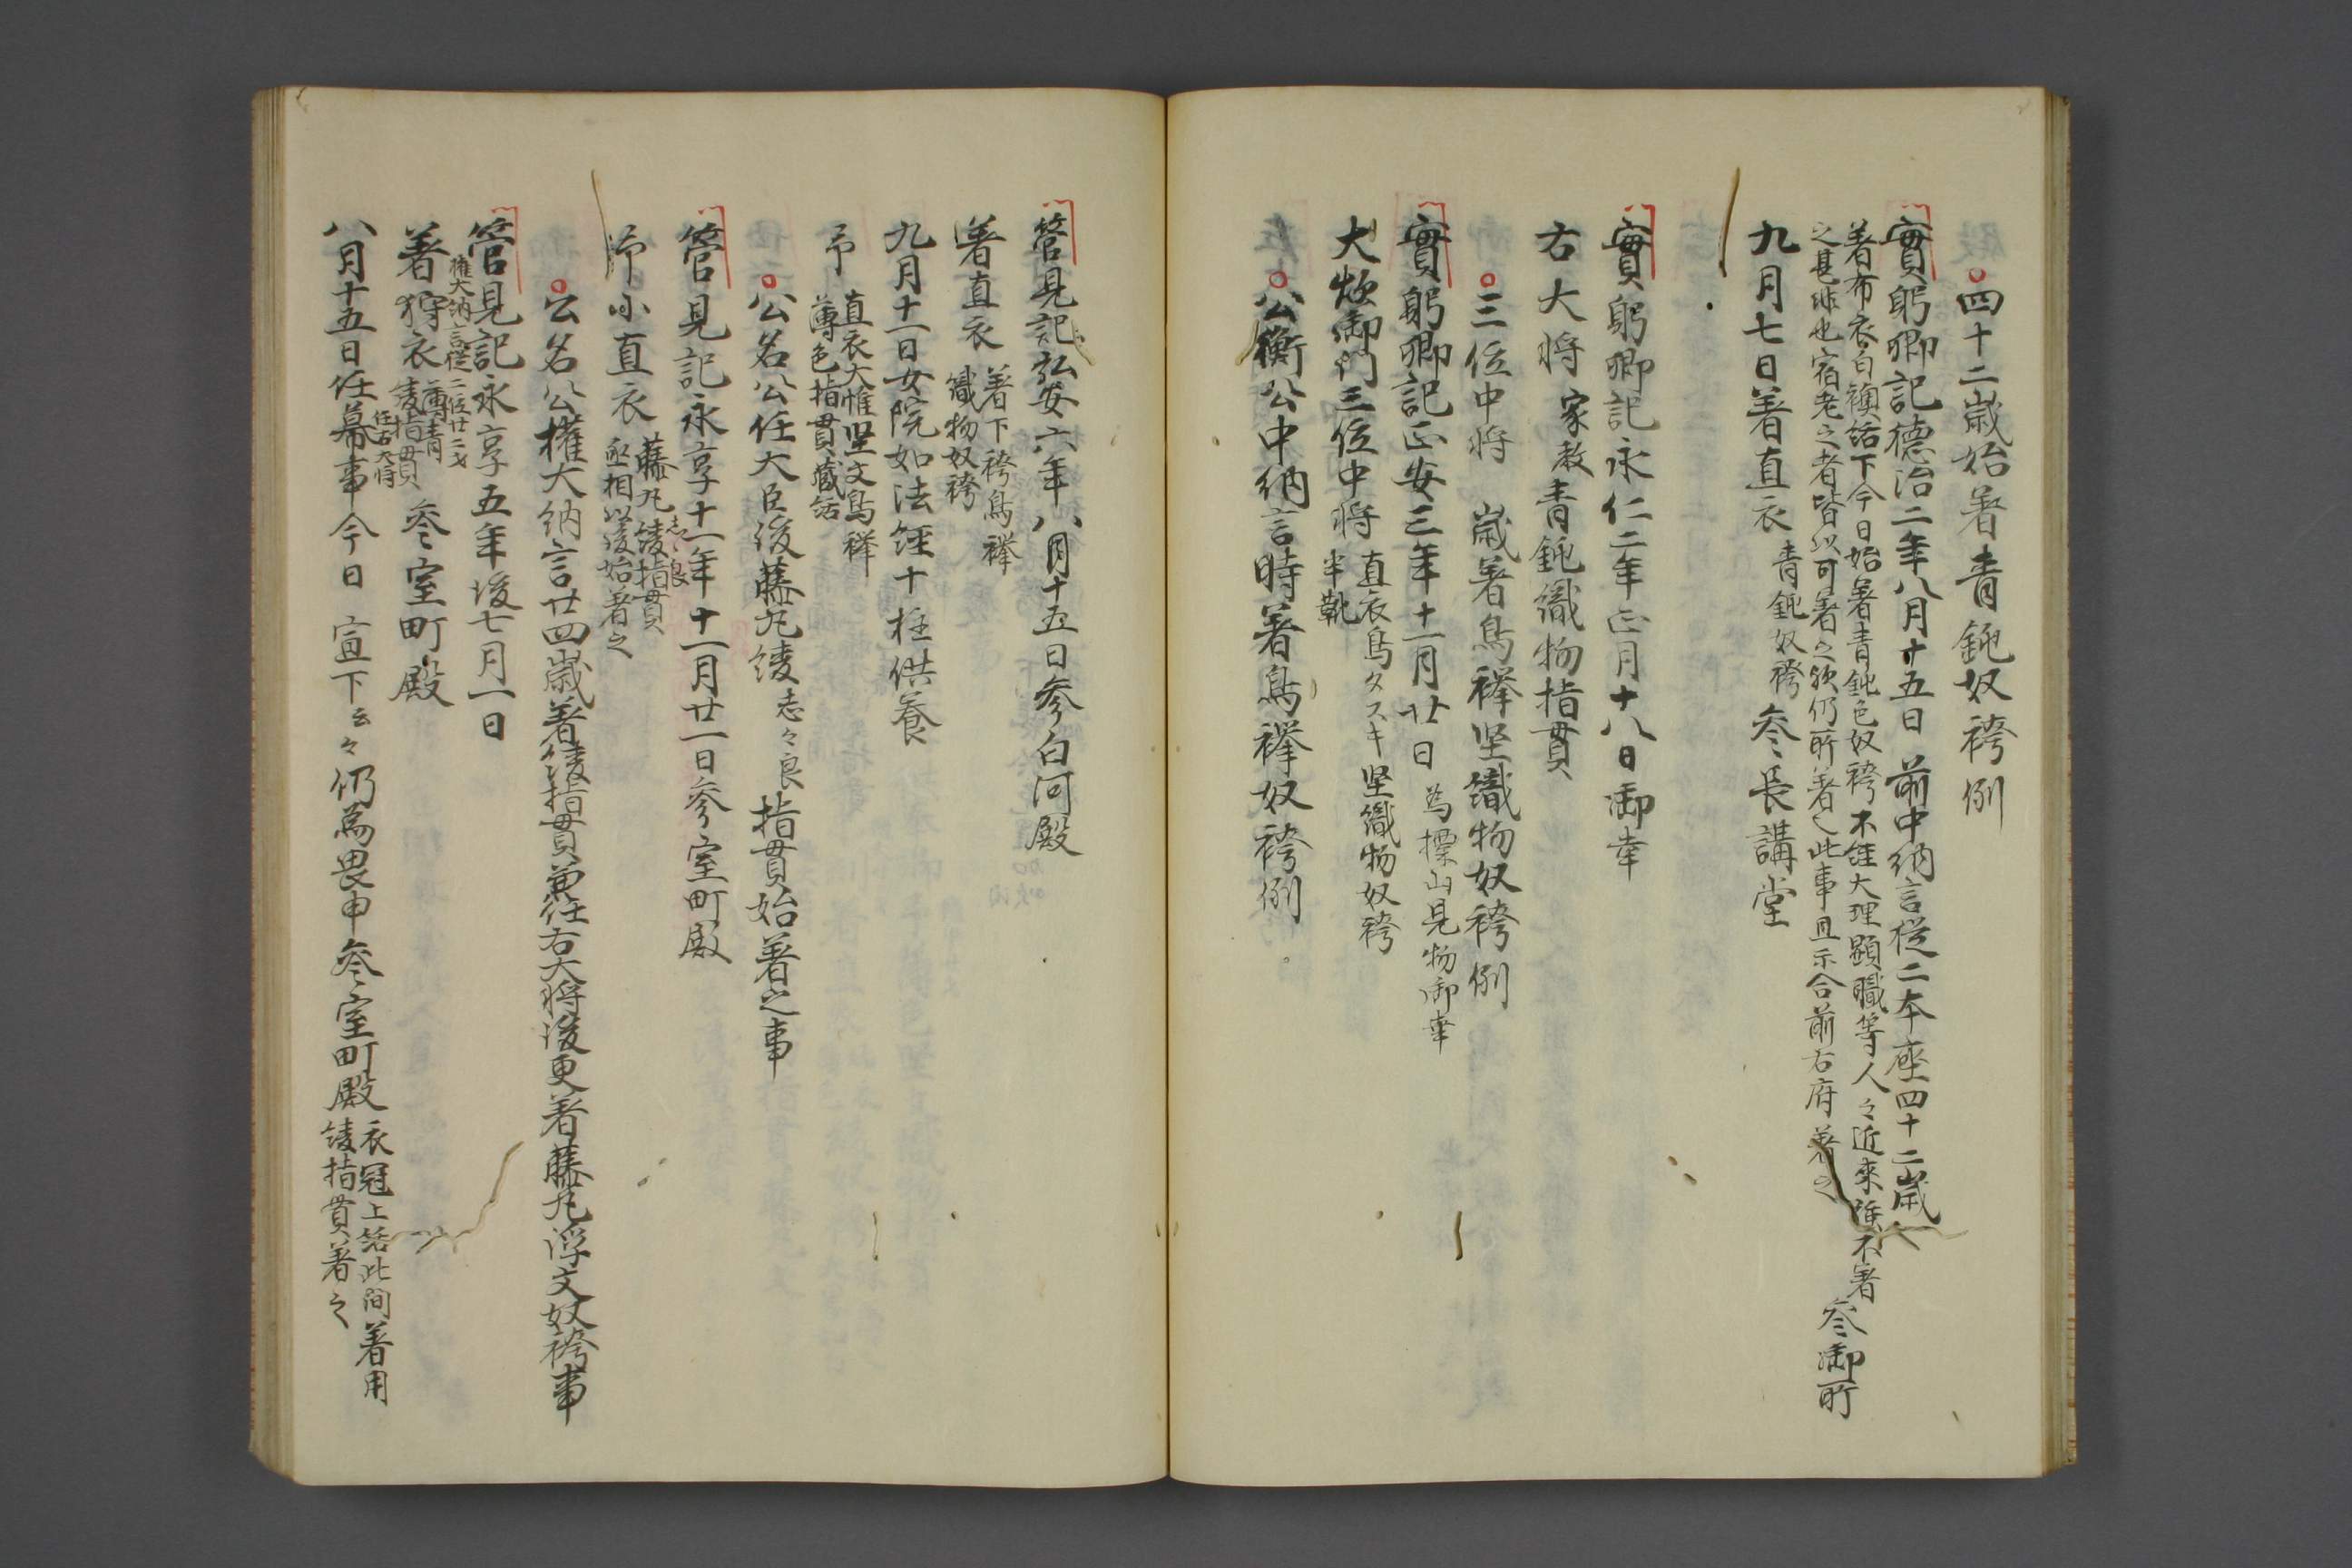 四十二歳始著青鈍奴袴例
實躬卿記德治二年八月十五日前中納言從二本座四十二歳
著布衣白襖結下今日始著青鈍色奴袴不經大理顕職等人々近來雖不著
之甚非也宿老之者皆以可著之欤仍所著之此事且示合前右府著之
參御所
九月七日著直衣青鈍奴袴參長講堂
實躬卿記永仁二年正月十八日御幸
右大将家教青鈍織物指貫
三位中将 歳著鳥襷堅織物奴袴例
實躬卿記正安三年十一月廿日為標山見物御幸
大炊御門三位中将直衣鳥タスキ堅織物奴袴
半靴
公衡公中納言時著鳥襷奴袴例
管見記弘安六年八月十五日參白河殿
著直衣著下袴鳥襷
織物奴袴
九月十一日女院如法經十種供養
予直衣大帷堅文鳥襷
薄色指貫蔵結
公名公任大臣後藤丸綾志々良指貫始著之事
管見記永享十一年十一月廿一日參室町殿
予小直衣藤丸綾指貫
志々良
丞相以後始著之
公名公權大納言廿四歳著綾指貫兼任右大将後更著藤丸浮文奴袴事
管見記永享五年後七月一日
權大納言從二位廿二才
著狩衣薄青
綾指貫參室町殿
任右大将
八月十五日任幕事今日 宣下云々仍為畏申參室町殿衣冠上結此間著用
綾指貫著之